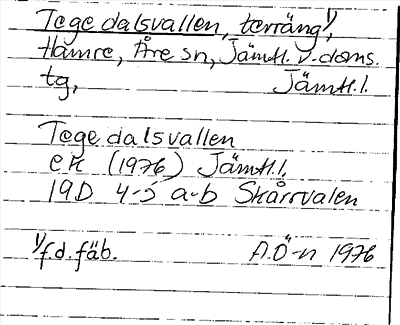 Tegedalsvallen, terräng 1),
Hamre, Åre sn, Jämtl. v. doms.
tg, Jämtl. l.
Tegedalsvallen
ek (1976) Jämtl. l.
19D 4-5 a-b Skårrvalen
1) f.d. fäb. A.Ö-n 1976